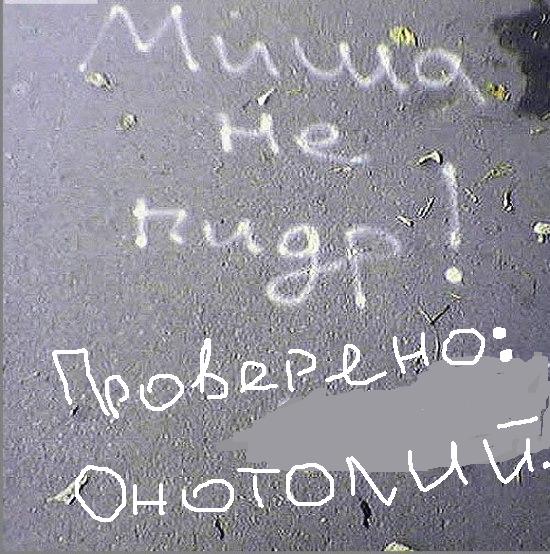 Миша
не
пидр!
Проверено:
Онотолий.